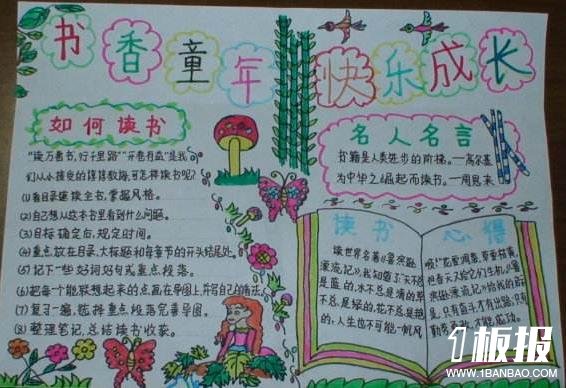 书香童年 快乐成长
如何读书
"读万卷书,行千里路""开卷有益"是我
们从小接受的谆谆教诲,可怎样读书呢?
(1)看目录建读全书,掌握风格。
(2)自己想从这本书里看到什么问题。
(3)目标确定后,规定时间。
(4)重点放在目录、大标题和每章节的开头结尾处。
(5)记下一些好词好句或重点段落。
(6)把每个能联想起来的点画在导图上,并写自己的看法。
(7)复习一遍,选择重点段落完善导图。
(8)整理笔记,总结读书收获。
名人名言
书籍是人类进步的阶梯。—高尔基
为中华之崛起而读书。—周恩来
读书
读世界名著《鲁滨逊
漂流记》,我知道了:天不总
是蓝的,水不总是清的,草
不总是绿的,花不总是艳
的,人生也不可能一帆风
心得
《鲁滨逊漂流记》给我的启
是,只有奋斗,才有出路;只有
勤劳
板报
WWW.1BANBAO.COM